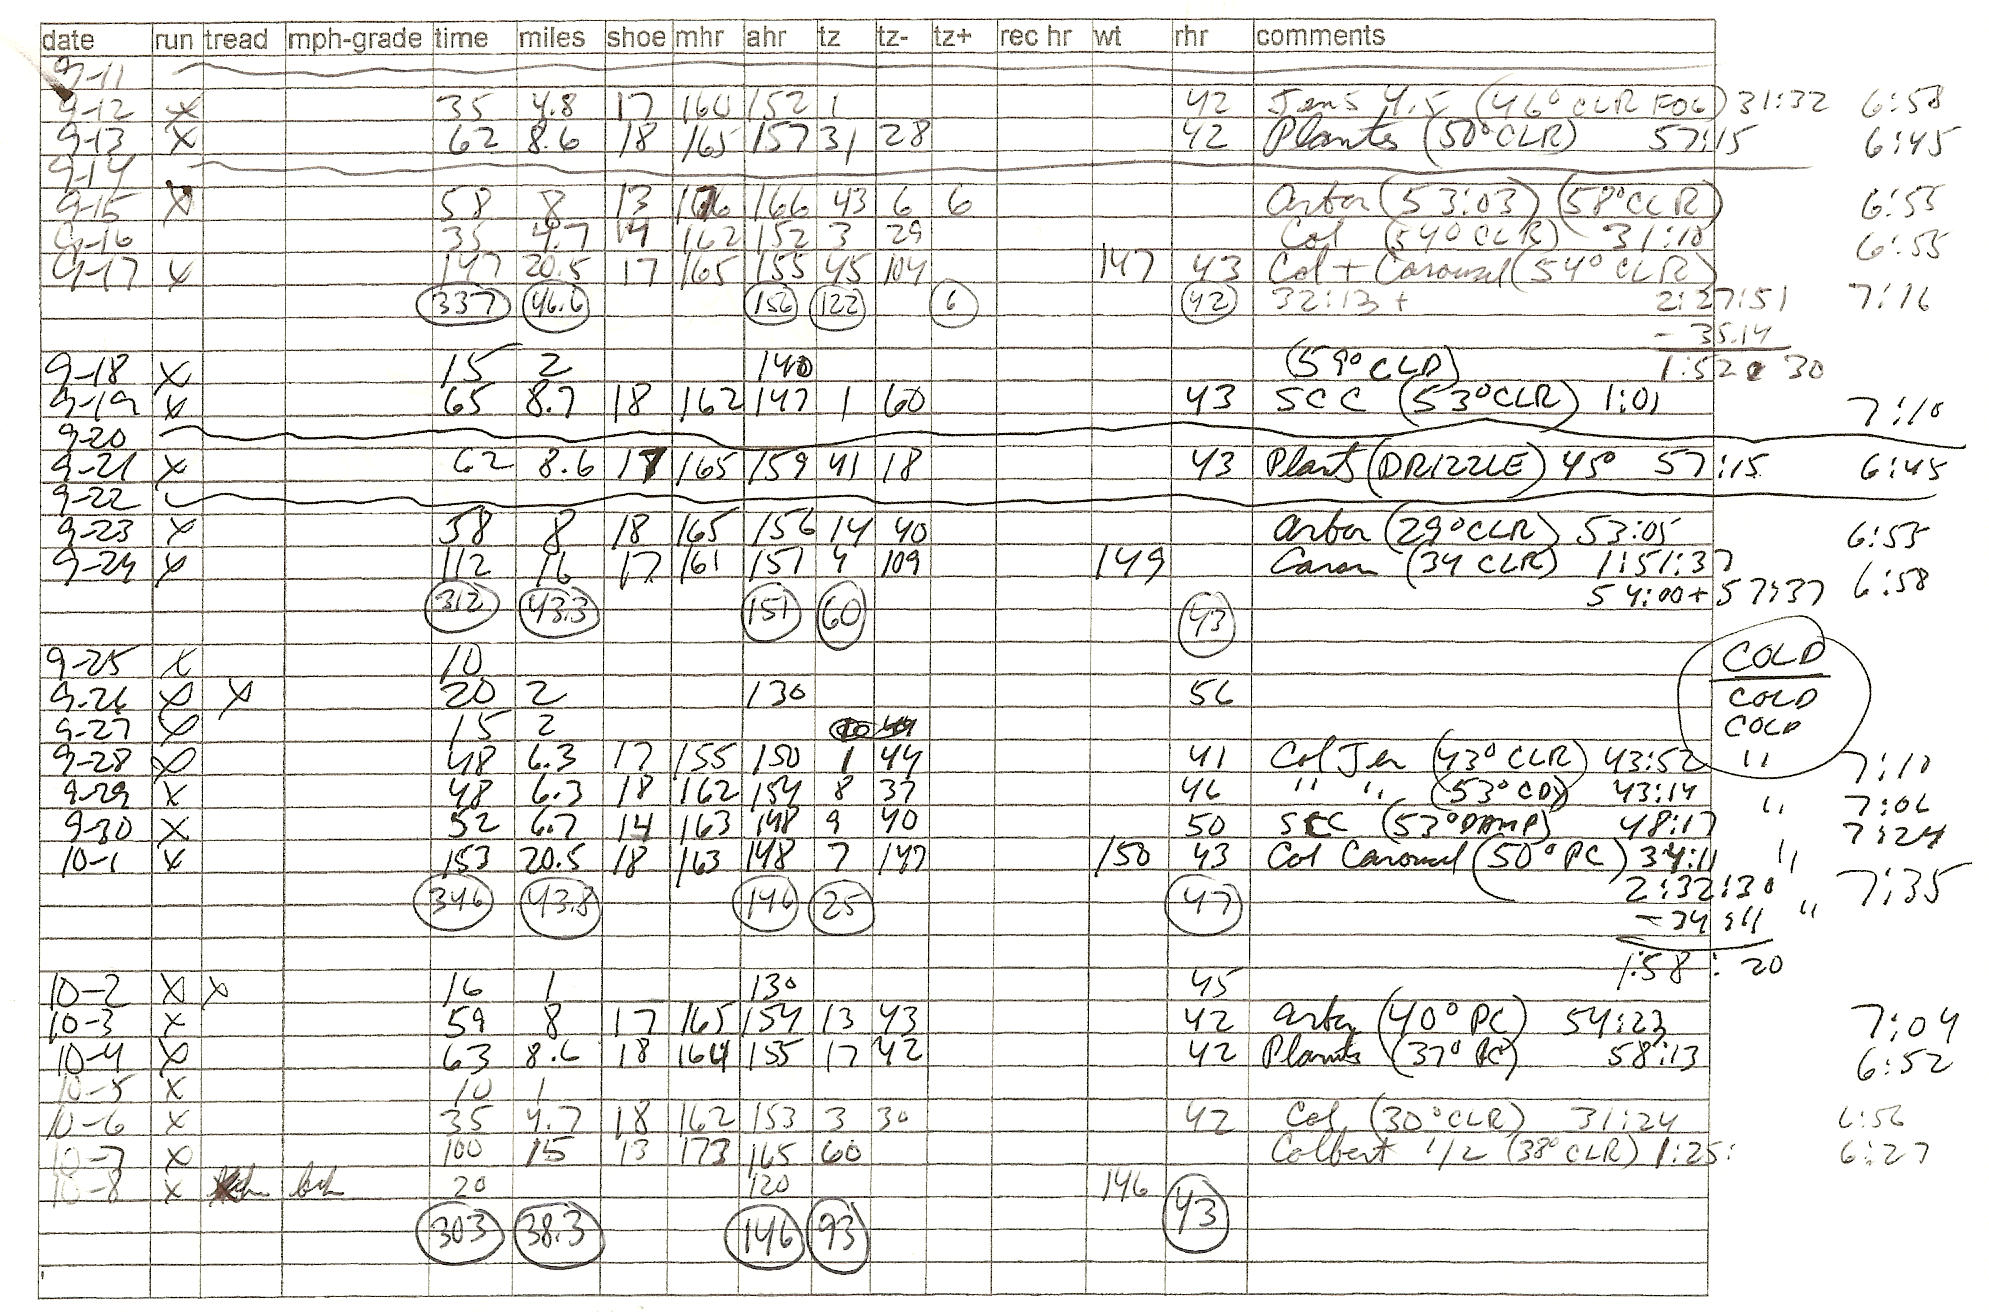 date run tread mph-grade time miles shoe mhr ahr tz tz- tz+ rec hr wt rhr comments
9-11
9-12 x 35 4.8 17 160 152 1 42 Jens 4.5 (46° CLR FOG) 31:32 6:58
9-13 x 62 8.6 18 165 157 31 28 42 Plants (50° CLR) 57:15 6:45
9-14
9-15 x 58 8 13 176 166 43 6 6 Arbor (53:03) (58° CLR) 6:53
9-16 35 4.7 14 162 152 3 29 Col (54° CLR) 31:10 6:55
9-17 x 147 20.5 17 165 155 45 104 147 43 Col + Carousel (54° CLR)
337 46.6 156 122 6 42 32:13 + 2:27:51 7:16
- 35.14
9-18 x 15 2 140 (59° CLD) 1:52 30
9-19 x 65 8.7 18 162 147 1 60 43 SCC (53° CLR) 1:01 7:10
9-20
9-21 x 62 8.6 17 165 159 41 18 43 Plants (DRIZZLE) 45° 57:15 6:45
9-22
9-23 x 58 8 18 165 156 14 40 Arbor (29° CLR) 53:05 6:53
9-24 x 112 16 17 161 151 4 109 149 Carou (34 CLR) 1:51:37
312 43.3 151 60 43 54:00 + 57:37 6:58
9-25 x 10 COLD
9-26 x x 20 2 130 56 COLD
9-27 x 15 2 COLD
9-28 x 48 6.3 17 155 150 1 44 41 Col Jen (43° CLR) 43:52 " 7:10
9-29 x 48 6.3 18 162 154 8 37 46 " " (53° CD) 43:14 " 7:06
9-30 x 52 6.7 14 163 148 9 40 50 SCC (53° DAMP) 48:17 7:24
10-1 x 153 20.5 18 163 148 7 147 150 43 Col Carousel (50° PC) 34:11 "
346 43.8 146 25 47 2:32:30 7:35
- 34:11 "
1:58:20
10-2 x x 16 1 130 45
10-3 x 59 8 17 165 154 13 43 42 Arbor (40° PC) 54:23 7:04
10-4 x 63 8.6 18 164 155 17 42 42 Plants (37° PC) 58:13 6:52
10-5 x 10 1
10-6 x 35 4.7 18 162 153 3 30 42 Col (30° CLR) 31:24 6:56
10-7 x 100 15 13 173 165 60 Colbert 1/2 (38° CLR) 1:25: 6:27
10-8 x 20 120 146
303 38.3 146 93 43